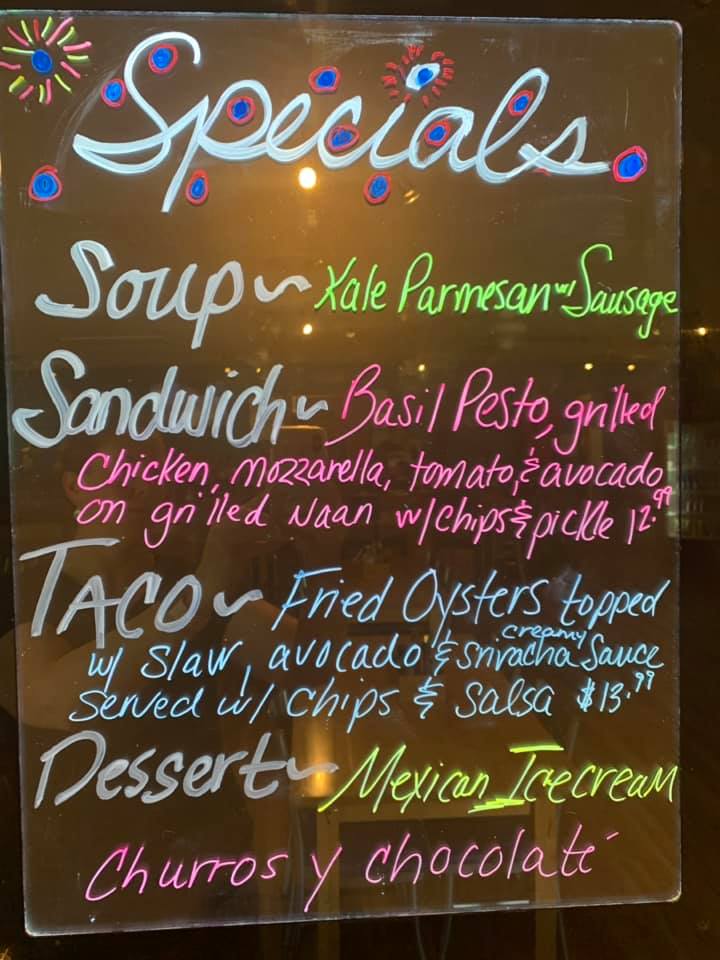 Specials
Soup~ Kale Parmesan w/ Sausage
Sandwich~ Basil Pesto, grilled
Chicken, mozzarella, tomato, & avocado
on grilled Naan w/chips & pickle 12.99
TACO~ Fried Oysters topped
w/ slaw, avocado & creamy sriracha Sauce
Served w/ chips & Salsa $13.99
Dessert~ Mexican Ice cream
Churros y chocolaté